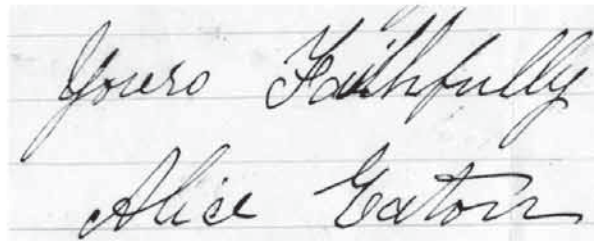 Yours Faithfully
Alice Eaton